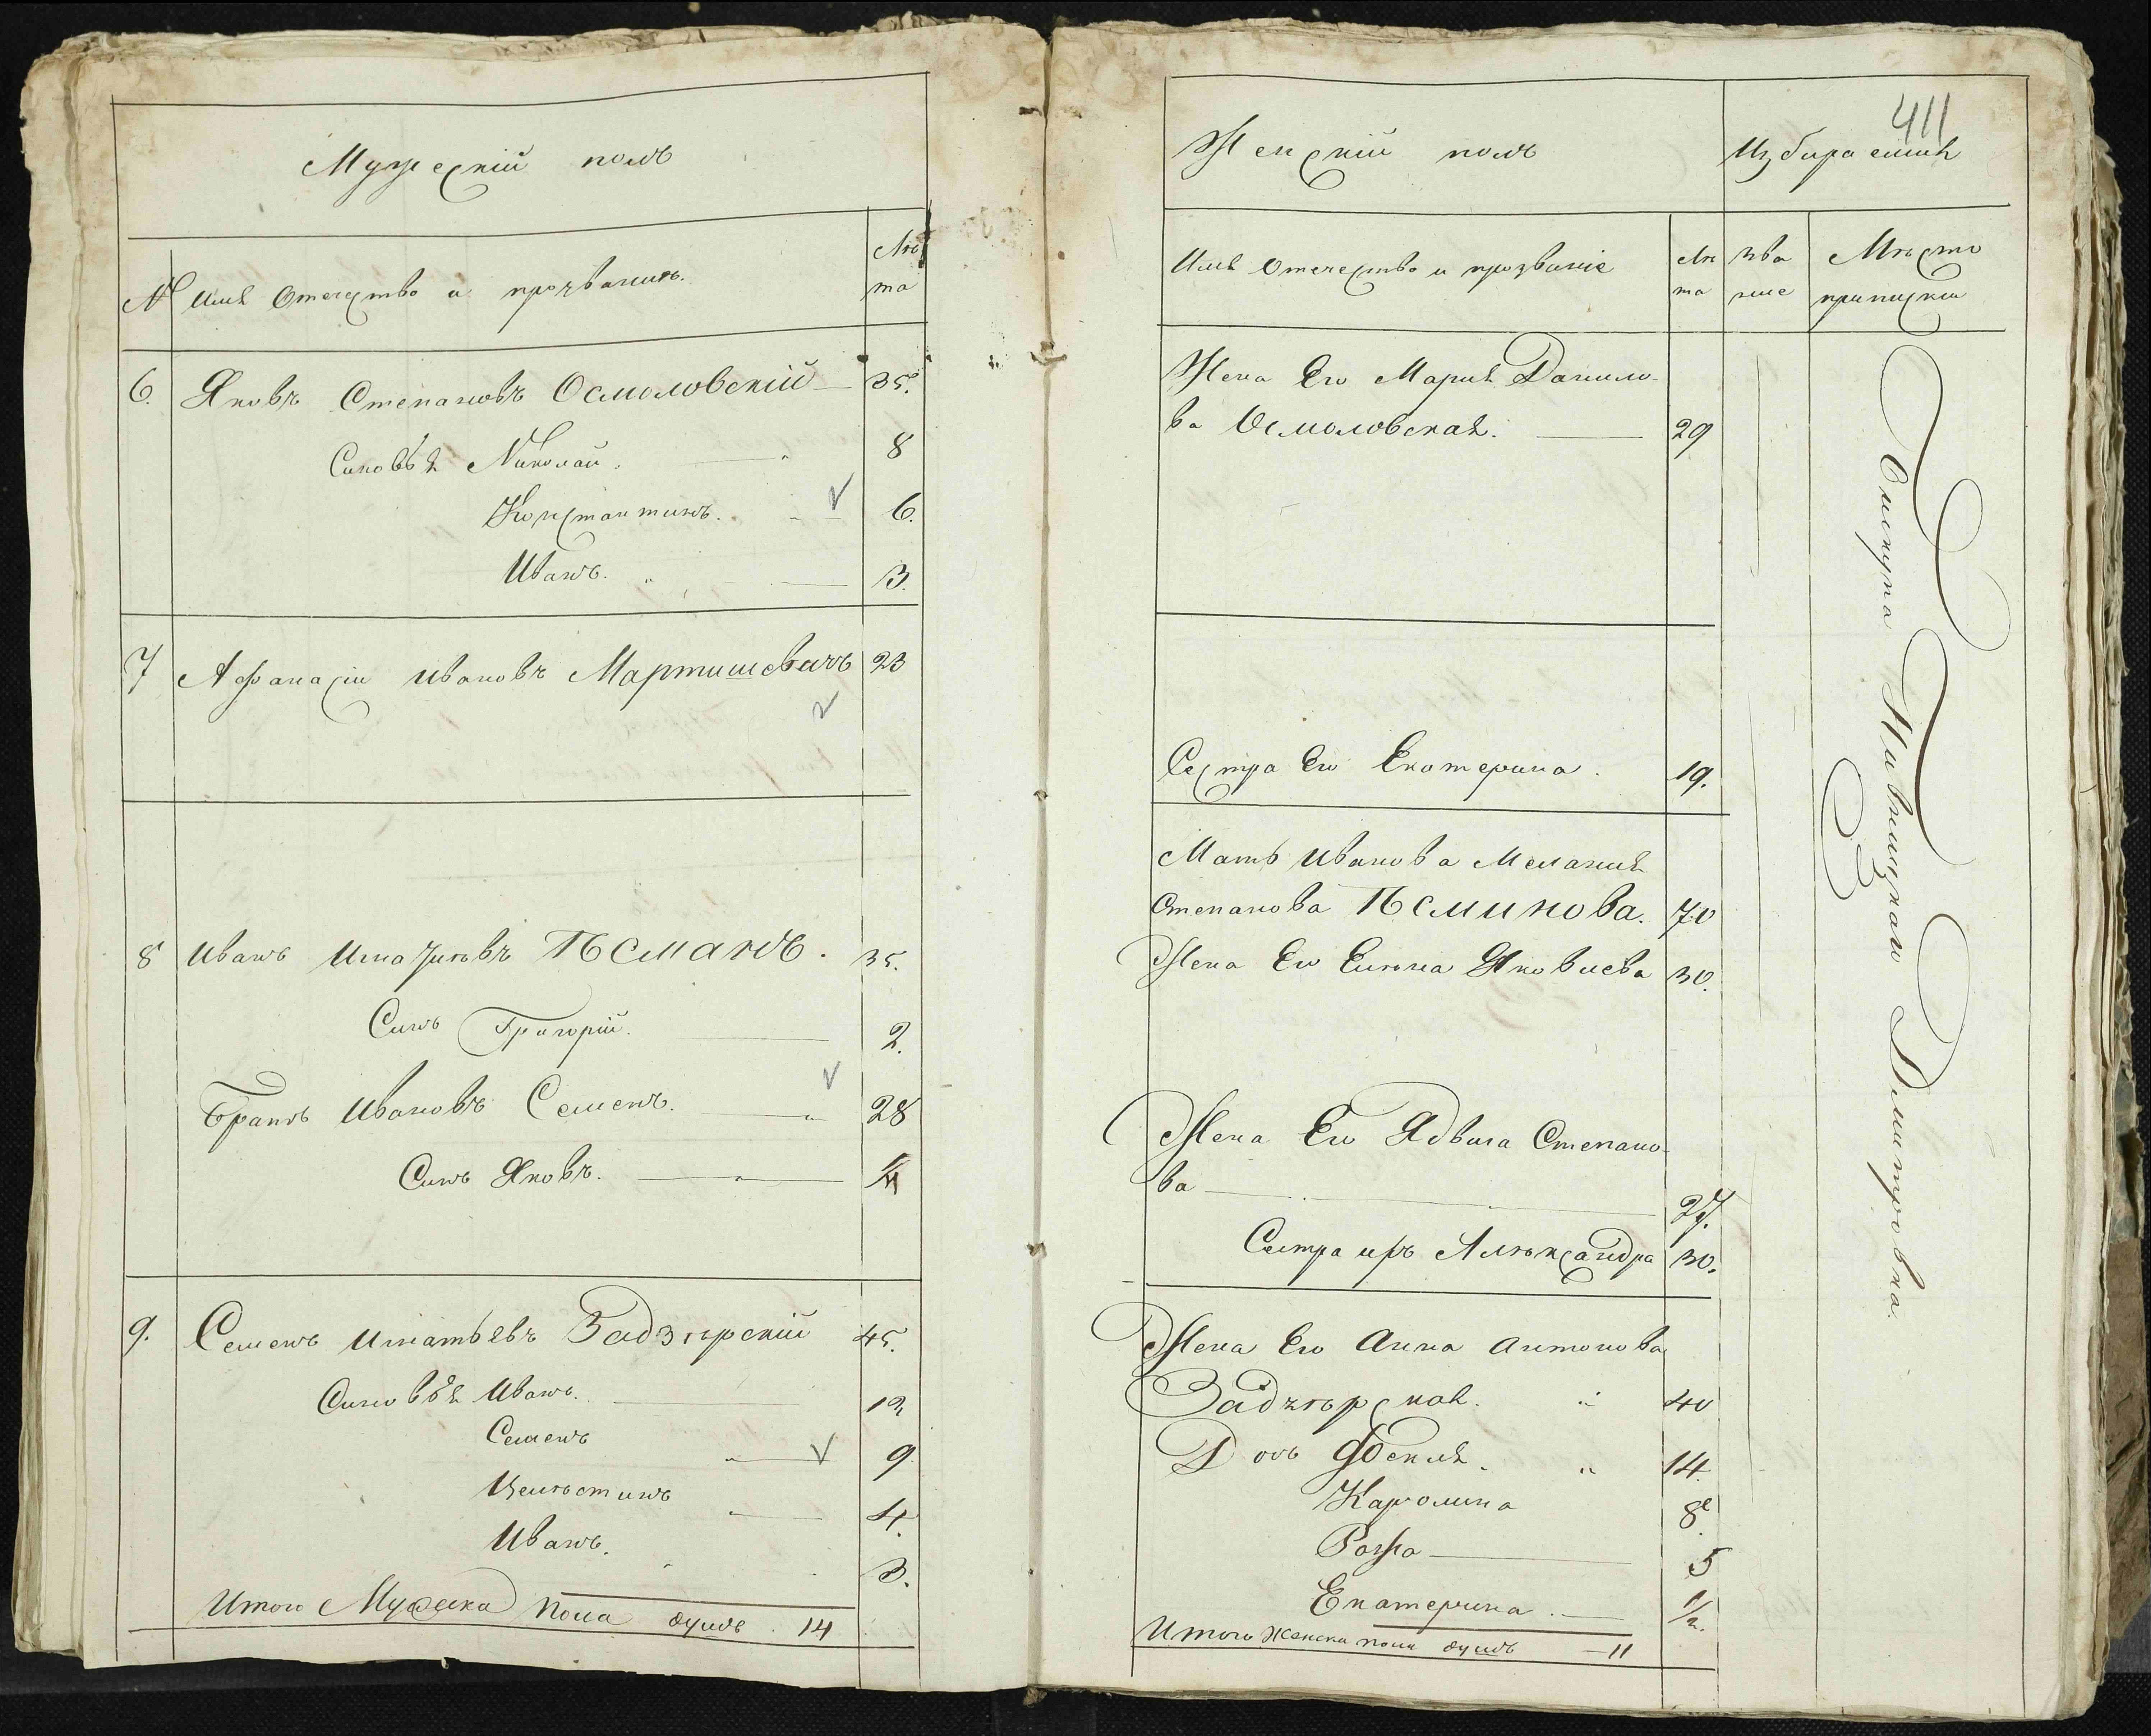 Мужескій полъ
№ Имя Отечество и прозваніе.
Лѣ
та
6. Яковъ Степановъ Осмоловскій 35.
Сыновья Николай. 8
Константинъ. 6.
Иванъ. 3.
7 Афанасій Ивановъ Мартишевичъ 23
8 Иванъ Игнатьевъ 35.
Сынъ Григорій. 2.
Братъ Ивановъ Семенъ. 28
Сынъ Яковъ.
9. Семенъ Игнатьевъ Задзѣрскій 45.
Сыновья Иванъ. 12
Семенъ 9
Цельстинъ 4.
Иванъ. 3.
Итого Мужска Пола душъ 14
411
Женскій полъ
Избираемыя
Имя Отечество и прозваніе
Лѣ
та
Зва
ніе
Мѣсто
приписки
Жена Его Марія Данило-
ва Осмоловская. 29
Сестра Его Екатерина. 19.
Мать Иванова Меланія
Степанова 70
Жена Его Елена Яковлева 30.
Жена Его Ядвига Степано-
ва 27.
Сестра ихъ Алѣксандра 30.
Жена Его Анна Антонова
Задзѣрская. 40
Дочь Фекля 14.
Каролина 8
Роза 5
Екатерина. 1/2.
Итого Женска пола душъ 11
Дмитровка.